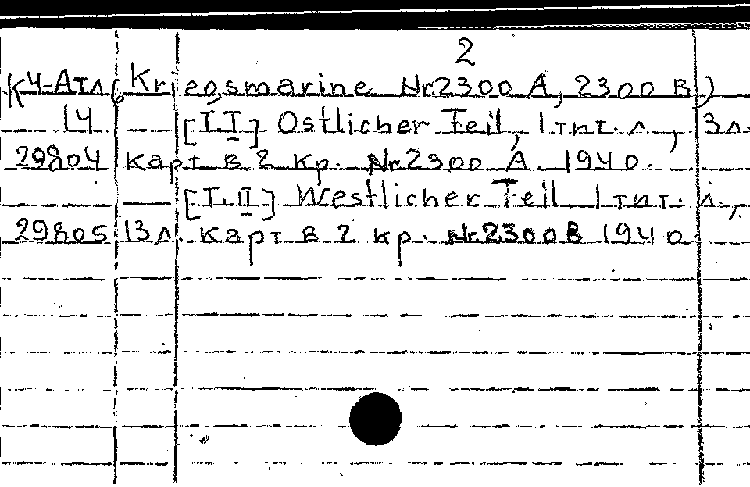 2
К4-Атл (Kriegsmarine Nr 2300 A, 2300 B)
14 [T.I] Ostlicher Teil, 1 тит. л., 3 л.
29804 карт в 2 кр. Nr 2300 A. 1940.
[T.II] Westlicher Teil 1 тит. л.,
29805 13 л. карт в 2 кр. Nr 2300 B 1940